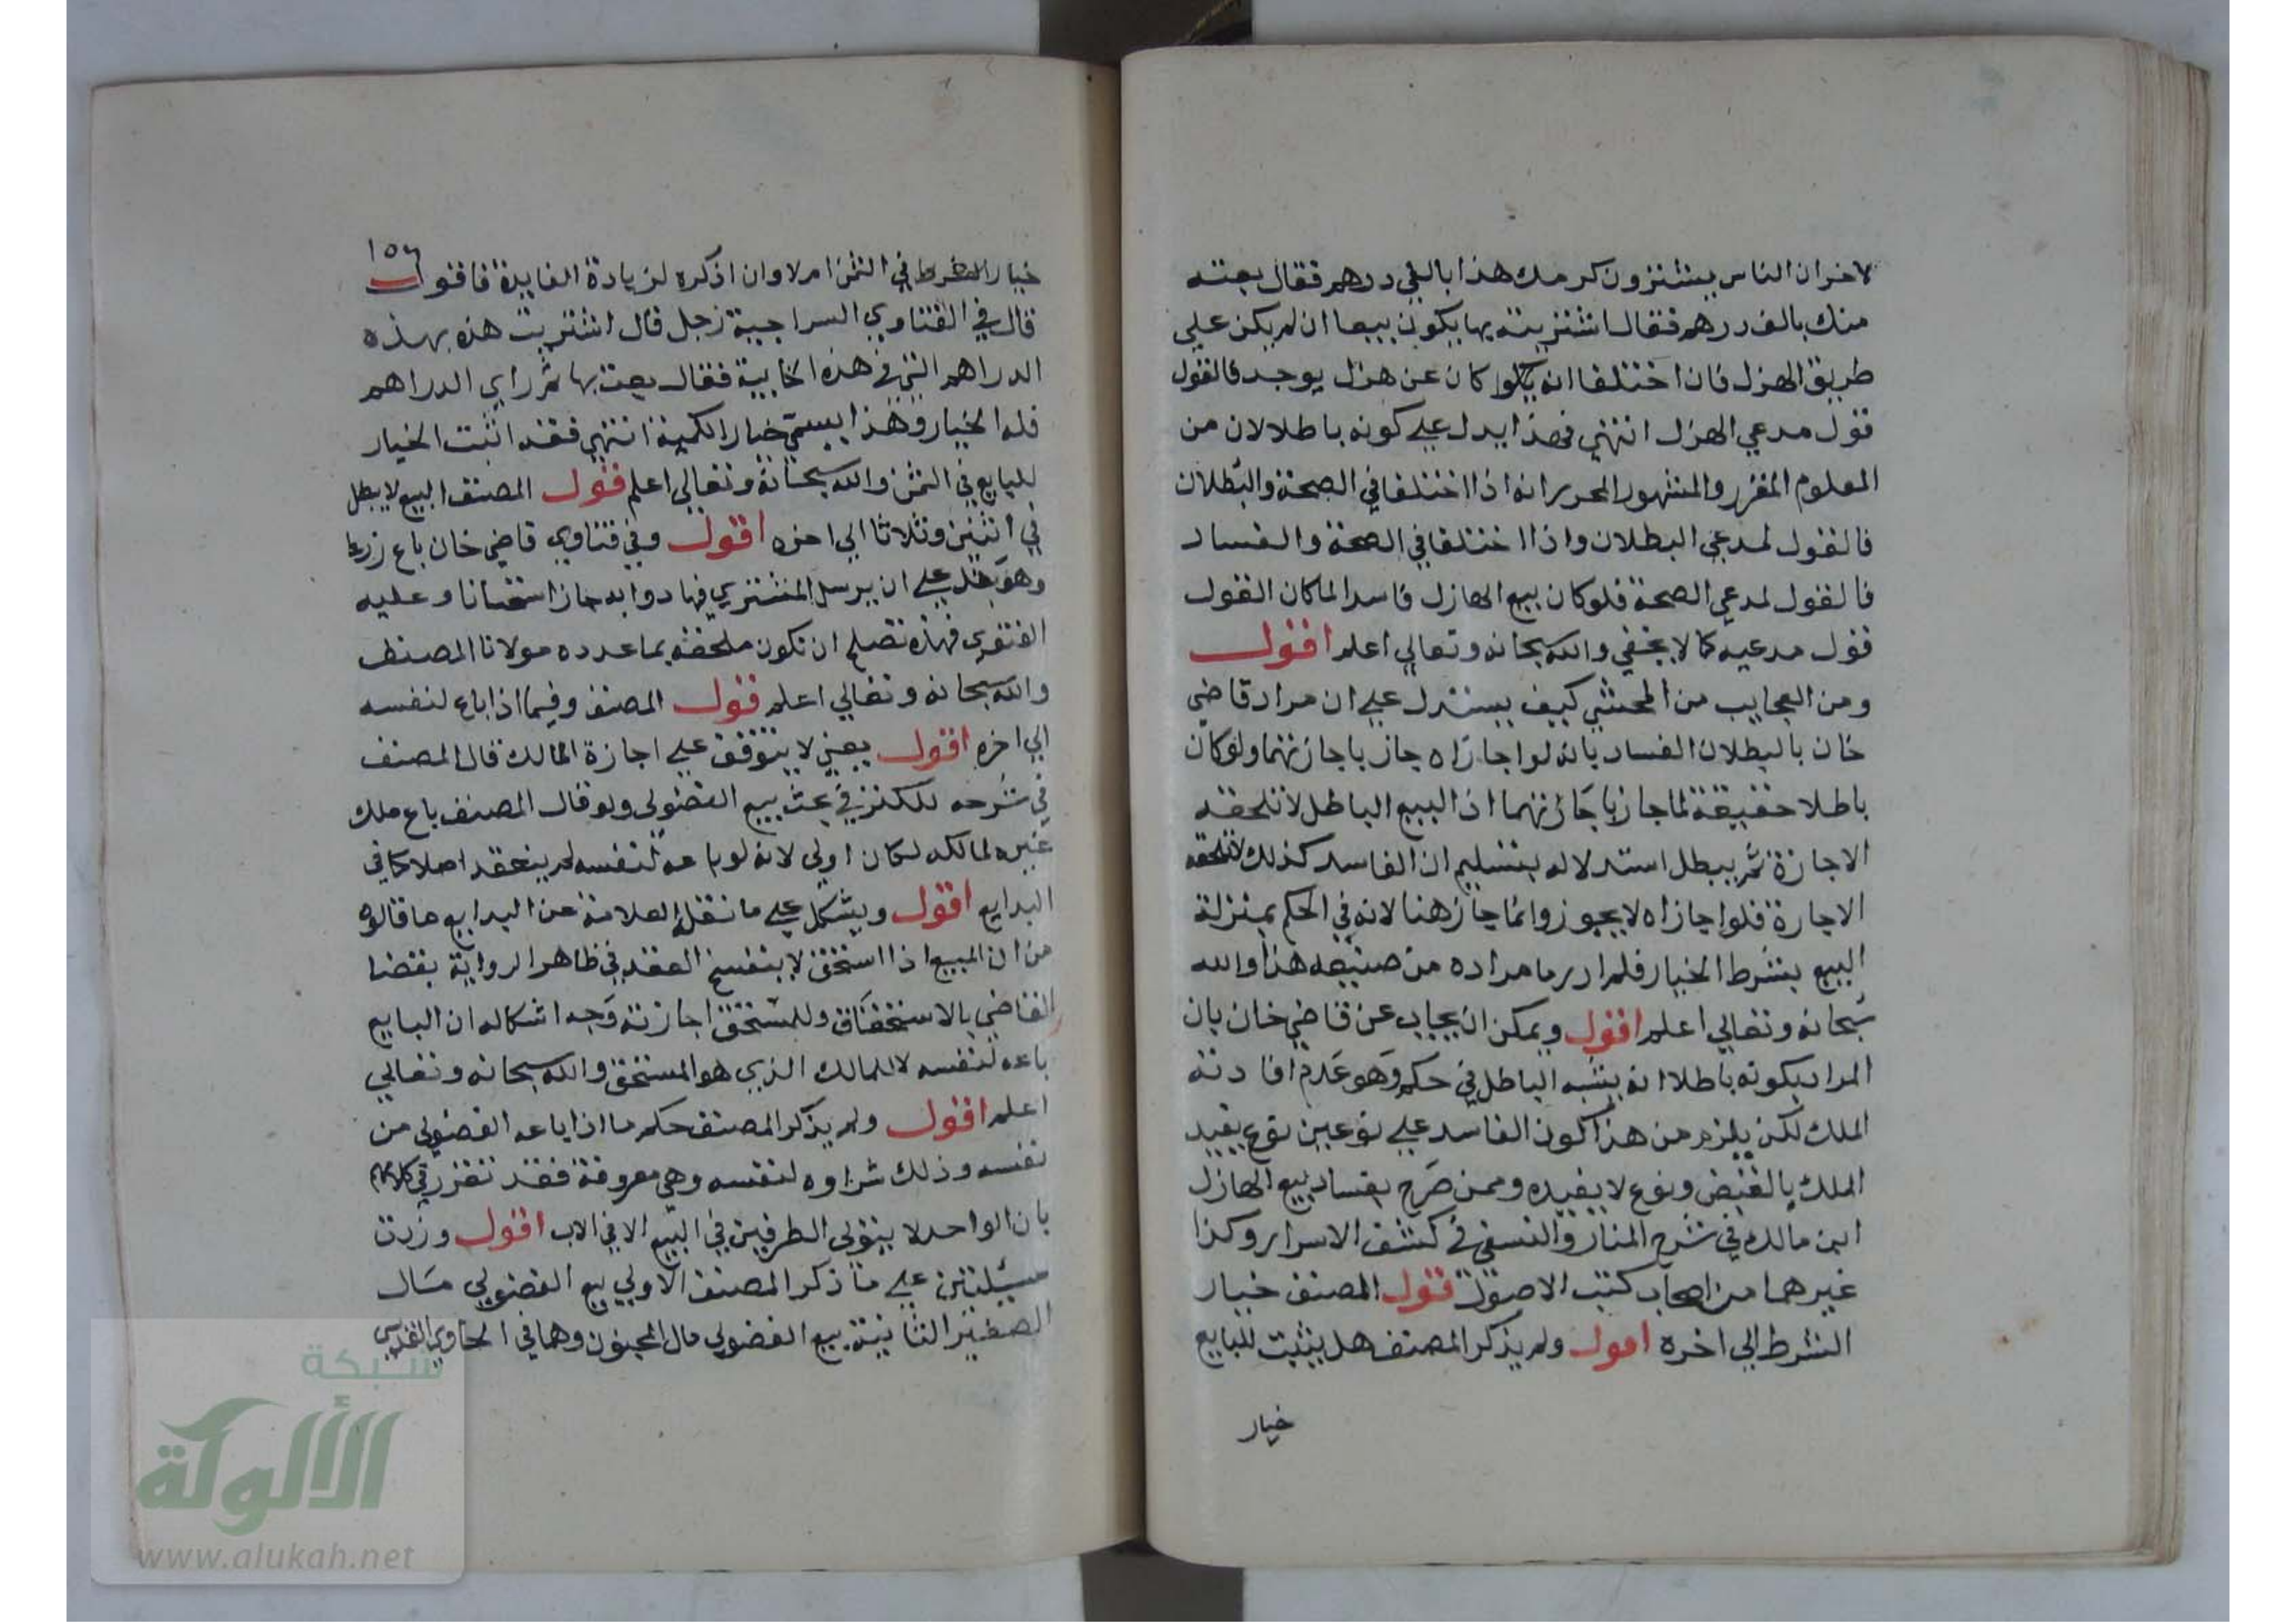 لاخر ان الناس يشترون كرمك هذا بالفي درهم فقال بعته
منك بالف درهم فقال اشتريته بها يكون بيعا ان لم يكن علي
طريق الهزل فان اختلفا انه كان عن هزل يوجد فالقول
قول مدعي الهزل انتهي فهذا يدل علي كونه باطلا لان من
المعلوم المقرر والمشهور المحرر انه اذا اختلفا في الصحة والبطلان
فالقول لمدعي البطلان واذا اختلفا في الصحة والفساد
فالقول لمدعي الصحة فلو كان بيع الهازل فاسدا لما كان القول
قول مدعيه كما لا يخفي والله سبحانه وتعالي اعلم اقول
ومن العجايب من المحشي كيف يستدل علي ان مراد قاضي
خان بالبطلان الفساد بانه لو اجازاه جاز باجازتهما ولو كان
باطلا حقيقة لما جاز باجازتهما اذ البيع الباطل لا تلحقه
الاجازة ثم يبطل استدلاله بتسليم ان الفاسد كذلك لا تلحقه
الاجازة فلو اجازاه لا يجوز وانما جاز هنا لانه في الحكم بمنزلة
البيع بشرط الخيار فلم ادر ما مراده من صنيعه هذا والله
سبحانه وتعالي اعلم اقول ويمكن ان يجاب عن قاضي خان بان
المراد بكونه باطلا انه يشبه الباطل في حكم وهو عدم افادته
الملك لكن يلزم من هذا كون الفاسد علي نوعين نوع يفيد
الملك بالقبض ونوع لا يفيده وممن صرح بفساد بيع الهازل
ابن مالك في شرح المنار والنسفي في كشف الاسرار وكذا
غيرهما من اصحاب كتب الاصول قول المصنف خيار
الشرط الي اخره اقول ولم يذكر المصنف هل يثبت للبايع
خيار
١٥٦
خيار الشرط في الثمن ام لا وان اذكره لزيادة الفايدة فاقول
قال في الفتاوي السراجية رجل قال اشتريت هذه بهذه
الدراهم التي في هذه الخابية فقال بعت بها ثم راي الدراهم
فله الخيار وهذا يسمي خيار الكمية انتهي فقد اثبت الخيار
للبايع في الثمن والله سبحانه وتعالي اعلم قول المصنف البيع لا يبطل
في اثنين وثلاثا الي اخره اقول وفي فتاوي قاضي خان باع زرعا
وهو بقل علي ان يرسل المشتري فيها دوابه جاز استحسانا وعليه
الفتوي فهذه تصلح ان تكون ملحقة بما عدده مولانا المصنف
والله سبحانه وتعالي اعلم قول المصنف وفيما اذا باع لنفسه
الي اخره اقول يعني لا يتوقف علي اجازة المالك قال المصنف
في شرحه للكنز في بحث بيع الفضولي ولو قال المصنف باع ملك
غيره لمالكه لكان اولي لانه لو باعه لنفسه لم ينعقد اصلا كما في
البدايع اقول ويشكل علي ما نقله العلامة عن البدايع ما قالوه
من ان المبيع اذا استحق لا ينفسخ العقد في ظاهر الرواية بقضا
القاضي بالاستحقاق وللمستحق اجازته وجه اشكاله ان البايع
باعه لنفسه لا للمالك الذي هو المستحق والله سبحانه وتعالي
اعلم اقول ولم يذكر المصنف حكم ما اذا باعه الفضولي من
نفسه وذلك شراوه لنفسه وهي معروفة فقد تقرر في كلامهم
بان الواحد لا يتولي الطرفين في البيع الا في الاب اقول وزدت
مسئلتين علي ما ذكر المصنف الاولي بيع الفضولي مال
الصغير الثانية بيع الفضولي مال المجنون وهما في الحاوي القدسي
شبكة
الألوكة
www.alukah.net